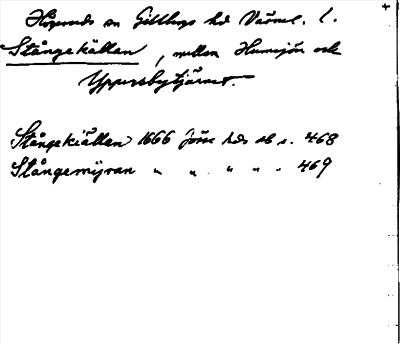 Högerud sn Gillbergs hd Värml. l.
Stångekällan, mellan Humsjön och
Yppersbytjärnet.
Stångekiällan 1666 Jöse hds ab s. 468
Stångemÿran " " " " " 469